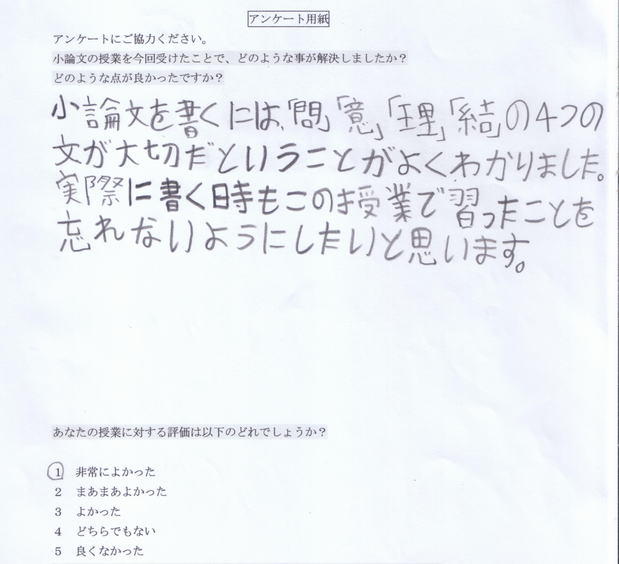 アンケート用紙
アンケートにご協力ください。
小論文の授業を今回受けたことで、どのような事が解決しましたか？
どのような点が良かったですか？
小論文を書くには、「問」「意」「理」「結」の4つの
文が大切だということがよくわかりました。
実際に書く時もこの授業で習ったことを
忘れないようにしたいと思います。
あなたの授業に対する評価は以下のどれでしょうか？
1 非常によかった
2 まあまあよかった
3 よかった
4 どちらでもない
5 良くなかった